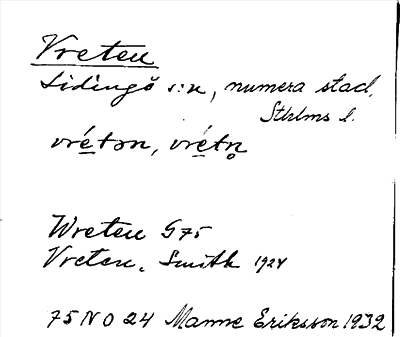 Vreten
Lidingö s:n, numera stad,
Sthlms l.
vré̲tən, vré̲tn̥
Wreten G75
Vreten. Smith 1924
75 NO 24 Manne Eriksson 1932